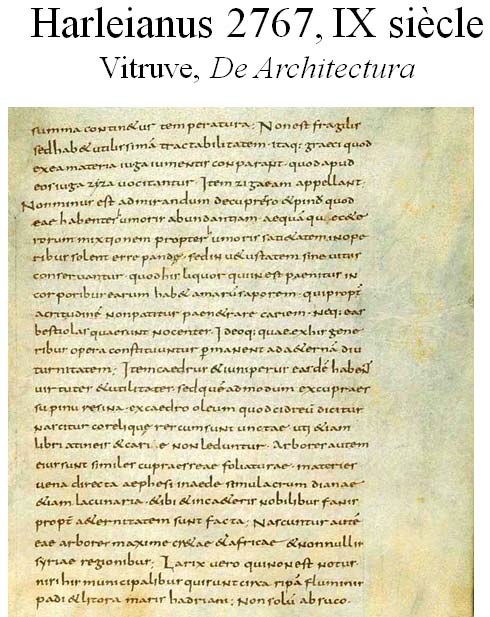 Harleianus 2767, IX siècle
Vitruve, De Architectura
summa continetur temperatura; Non est fragilis
sed habet utilissimā tractabilitatem · itaq; graeci quod
ex ea materia iuga iumentis conparant · quod apud
eos iuga zyza vocitantur · Item zigaeam appellant·
Non minus est admirandum de cupresso et pinu quod
eae habentes umoris abundantiam · aequā qu ceteo
rorum mixtionem propter umoris satietatem in ope
ribus solent esse pandae · sed in vetustatem sine vitiis
conservantur · quod his liquor qui inest paenitus in
corporibus earum habet amarū saporem · qui propt
acritudinē non patitur paenetrare cariem · neq; eas
bestiolas quae sunt nocentes · Ideoq; quae ex his gene
ribus opera constituuntur permanent ad aeternā diu
turnitatem; Item caedrus et iuniperus easdē habent
virtutes et utilitates · sed quē ad modum ex cupraes
su pinu resina · ex caedro oleum quod cidreū dicitur
nascitur · co reliquae res cum sunt unctae · uti etiam
libri a tineis et cari e non leduntur · Arbores autem
eius sunt similes cupraesseae foliaturae · materies
vena directa aephesi in aede simulacrum dianae
etiam lacunaria · et ibi et in caeteris nobilibus fanis
propt aeternitatem sunt facta; Nascuntur autē
eae arbores maxime cretae et africae · et nonnullis
syriae regionibus; Larix vero qui non est notus
nisi his municipalibus qui sunt circa ripā fluminis
padi et litora maris hadriani; Non solū ab suco·